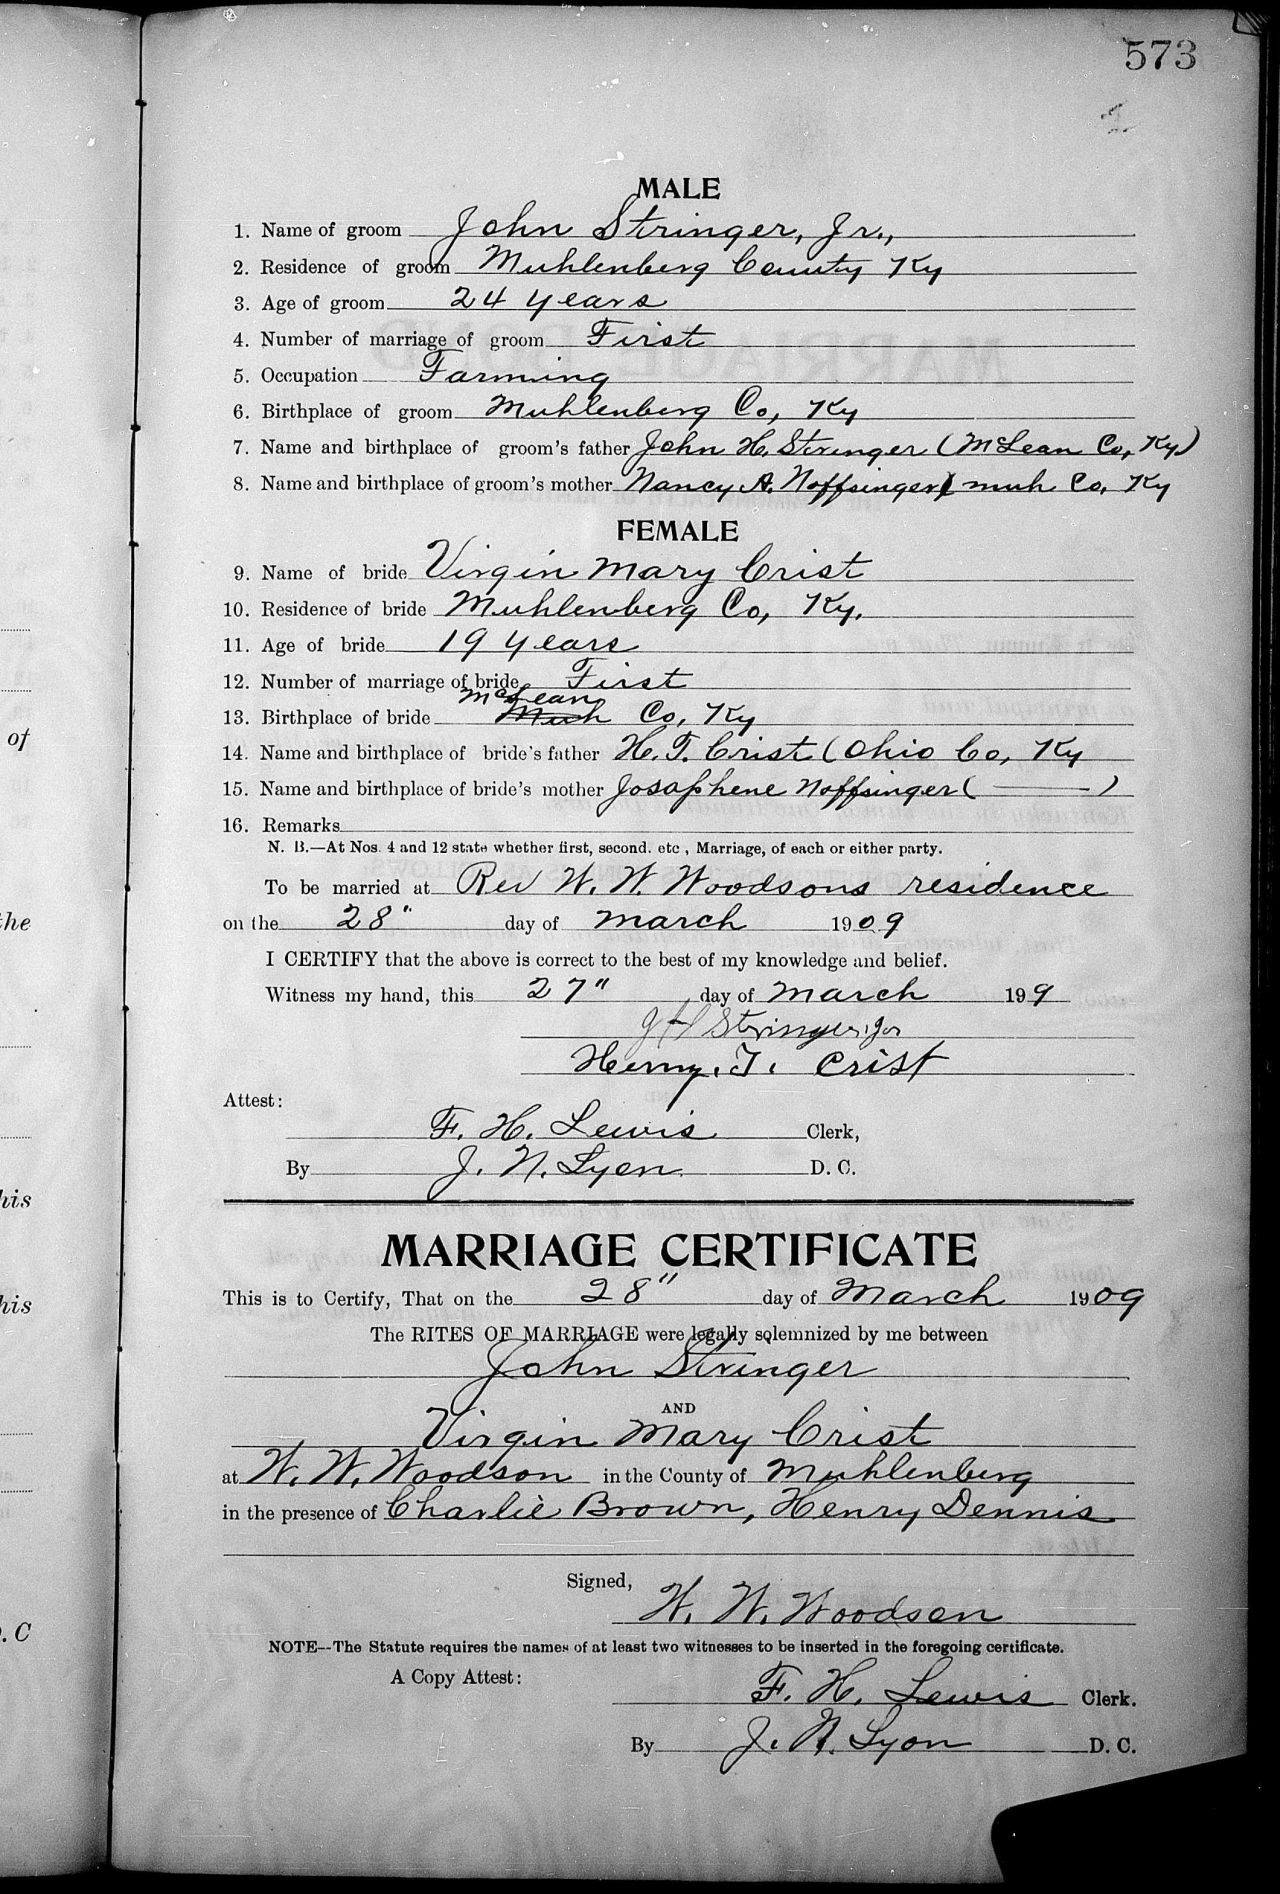 573
MALE
1. Name of groom John Stringer, Jr.,
2. Residence of groom Muhlenberg County Ky
3. Age of groom 24 years
4. Number of marriage of groom First
5. Occupation Farming
6. Birthplace of groom Muhlenberg Co, Ky
7. Name and birthplace of groom's father John H. Stringer (McLean Co, Ky)
8. Name and birthplace of groom's mother Nancy A. Noffsinger ( muh Co, Ky
FEMALE
9. Name of bride Virgin Mary Crist
10. Residence of bride Muhlenberg Co, Ky.
11. Age of bride 19 years
12. Number of marriage of bride First
13. Birthplace of bride McLean Muh Co, Ky
14. Name and birthplace of bride's father H. T. Crist (Ohio Co, Ky
15. Name and birthplace of bride's mother Josaphene Noffsinger ( — )
16. Remarks
N. B.—At Nos. 4 and 12 state whether first, second. etc , Marriage, of each or either party.
To be married at Rev W. W. Woodsons residence
on the 28" day of March 1909
I CERTIFY that the above is correct to the best of my knowledge and belief.
Witness my hand, this 27" day of March 199
J H Stringer Jor
Henry. T. Crist
Attest:
F. H. Lewis Clerk,
By J. N. Lyon D. C.
MARRIAGE CERTIFICATE
This is to Certify, That on the 28" day of March 1909
The RITES OF MARRIAGE were legally solemnized by me between
John Stringer
AND
Virgin Mary Crist
at W. W. Woodson in the County of Muhlenberg
in the presence of Charlie Brown, Henry Dennis
Signed,
W. W. Woodson
NOTE--The Statute requires the names of at least two witnesses to be inserted in the foregoing certificate.
A Copy Attest:
F. H. Lewis Clerk.
By J. N. Lyon D. C.